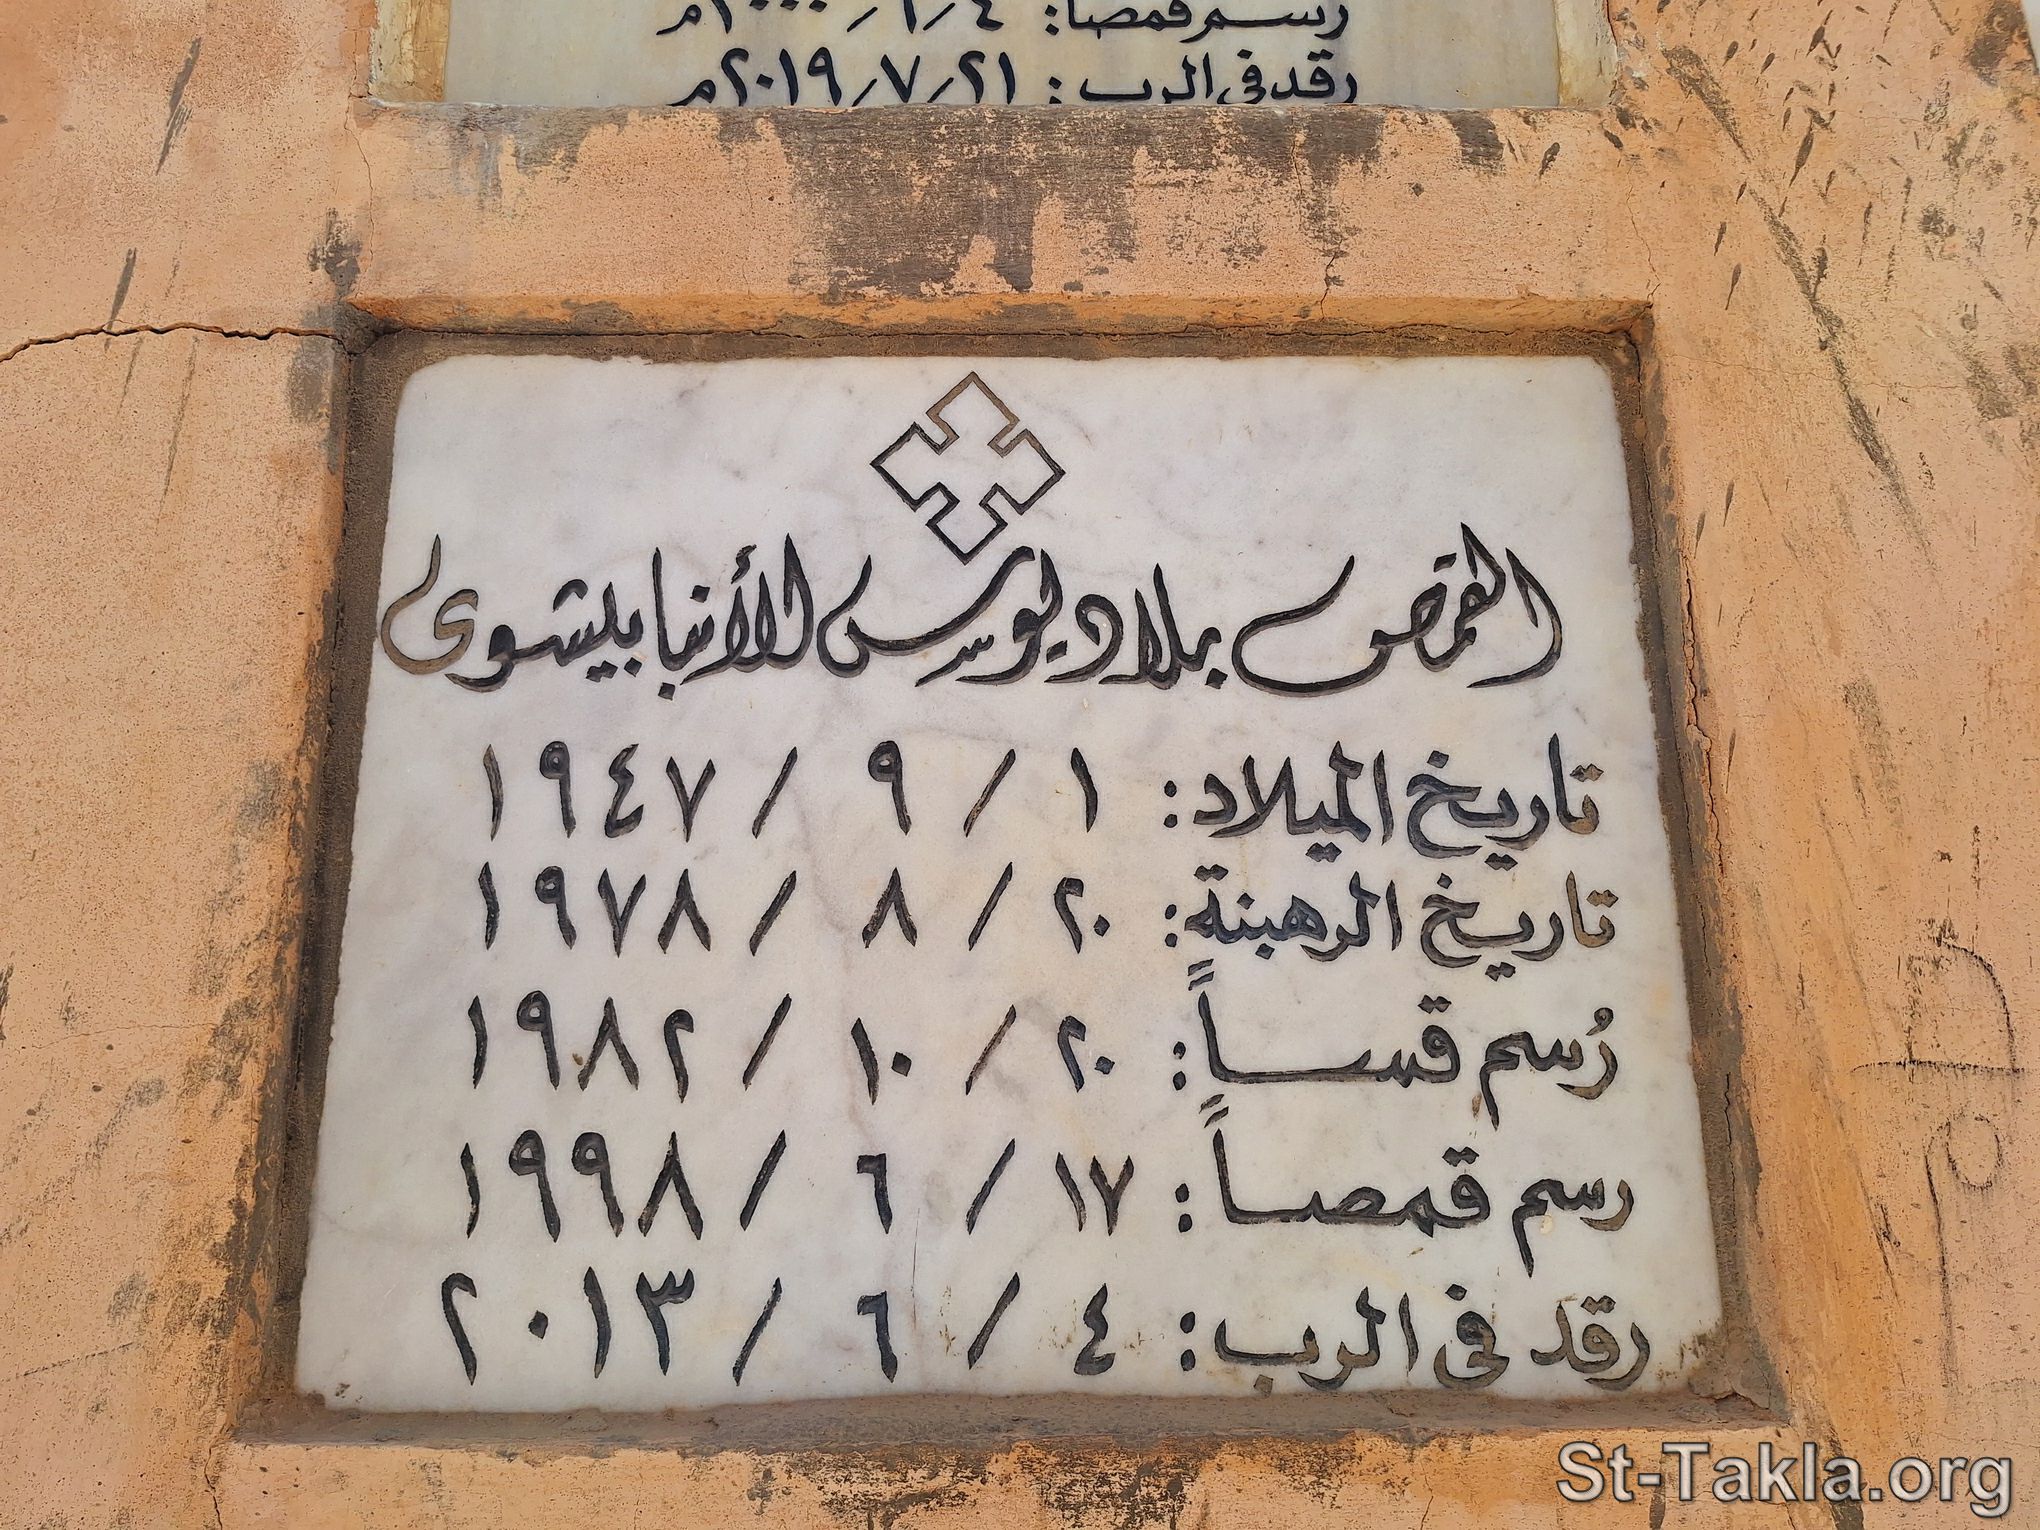 رسم قمصا: ٤ / ٦ / ٢٠٠٠م
رقد فى الرب: ٢١ / ٧ / ٢٠١٩م
القمص بلاديوس الأنبا بيشوى
تاريخ الميلاد: ١ / ٩ / ١٩٤٧
تاريخ الرهبنة: ٢٠ / ٨ / ١٩٧٨
رُسم قساً: ٢٠ / ١٠ / ١٩٨٢
رسم قمصاً: ١٧ / ٦ / ١٩٩٨
رقد فى الرب: ٤ / ٦ / ٢٠١٣
St-Takla.org